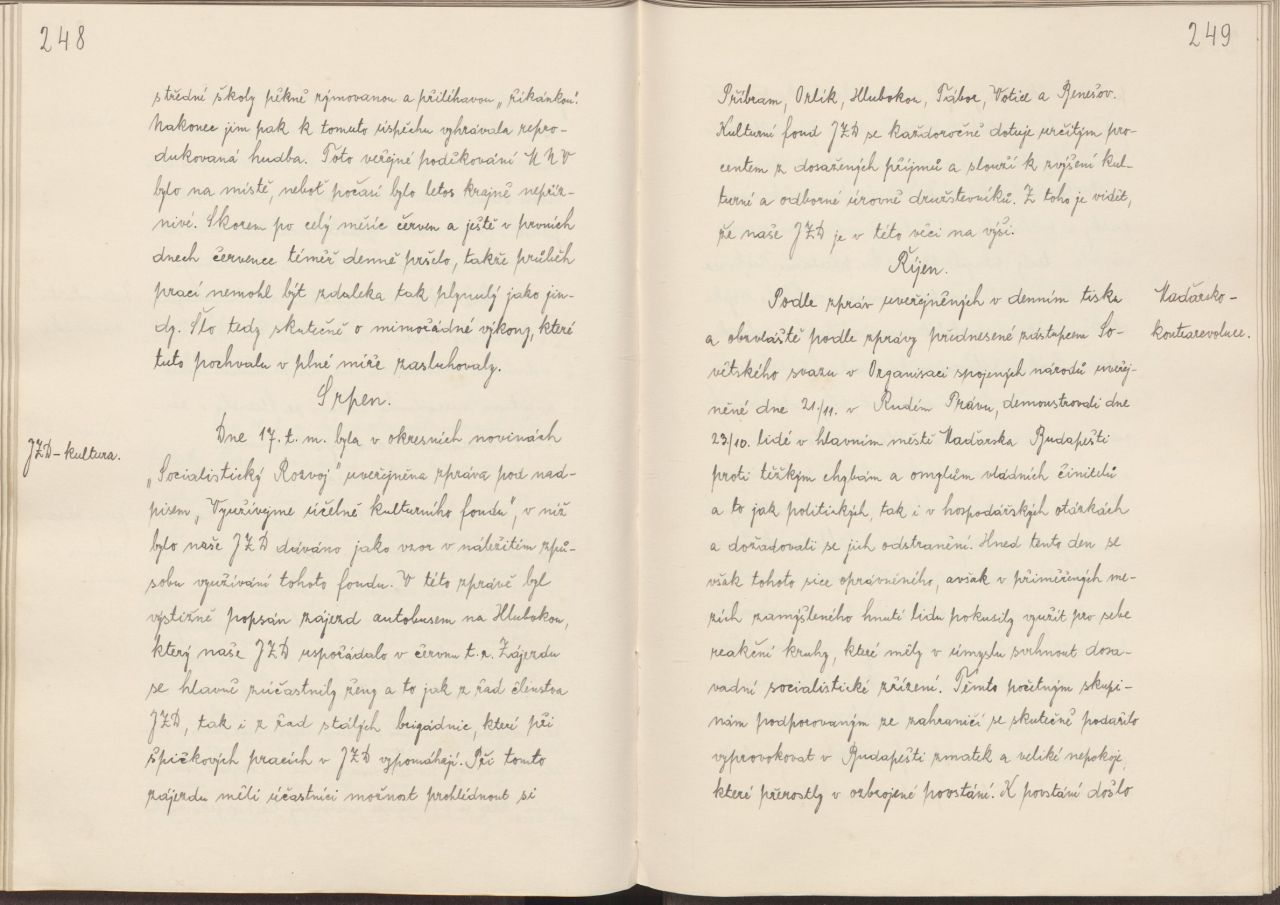 248
střední školy pěkně rýmovanou a přiléhavou „říkánkou".
Nakonec jim pak k tomuto úspěchu vyhrávala repro-
dukovaná hudba. Toto veřejné poděkování MNV
bylo na místě, neboť počasí bylo letos krajně nepříz-
nivé. Skorem po celý měsíc červen a ještě v prvních
dnech července téměř denně pršelo, takže průběh
prací nemohl být zdaleka tak plynulý jako jin-
dy. Šlo tedy skutečně o mimořádné výkony, které
tuto pochvalu v plné míře zasluhovaly.
Srpen.
JZD-kultura.
Dne 17. t. m. byla v okresních novinách
„Socialistický Rozvoj" uveřejněna zpráva pod nad-
pisem „Využívejme účelně kulturního fondu", v níž
bylo naše JZD dáváno jako vzor v náležitém způ-
sobu využívání tohoto fondu. V této zprávě byl
výstižně popsán zájezd autobusem na Hlubokou,
který naše JZD uspořádalo v červnu t. r. Zájezdu
se hlavně zúčastnily ženy a to jak z řad členstva
JZD, tak i z řad stálých brigádnic, které při
špičkových pracích v JZD vypomáhají. Při tomto
zájezdu měli účastníci možnost prohlédnout si
249
Příbram, Orlík, Hlubokou, Tábor, Votice a Benešov.
Kulturní fond JZD se každoročně dotuje určitým pro-
centem z dosažených příjmů a slouží k zvýšení kul-
turní a odborné úrovně družstevníků. Z toho je vidět,
že naše JZD je v této věci na výši.
Říjen.
Maďarsko-
kontrarevoluce.
Podle zpráv uveřejněných v denním tisku
a obzvláště podle zprávy přednesené zástupcem So-
větského svazu v Organisaci spojených národů uveřej-
něné dne 21/11. v Rudém Právu, demonstrovali dne
23/10. lidé v hlavním městě Maďarska Budapešti
proti těžkým chybám a omylům vládních činitelů
a to jak politických, tak i v hospodářských otázkách
a dožadovali se jich odstranění. Hned tento den se
však tohoto sice oprávněného, avšak v přiměřených me-
zích zamýšleného hnutí lidu pokusily využít pro sebe
reakční kruhy, které měly v úmyslu svrhnout dosa-
vadní socialistické zřízení. Těmto početným skupi-
nám podporovaným ze zahraničí se skutečně podařilo
vyprovokovat v Budapešti zmatek a veliké nepokoje,
které přerostly v ozbrojené povstání. K povstání došlo